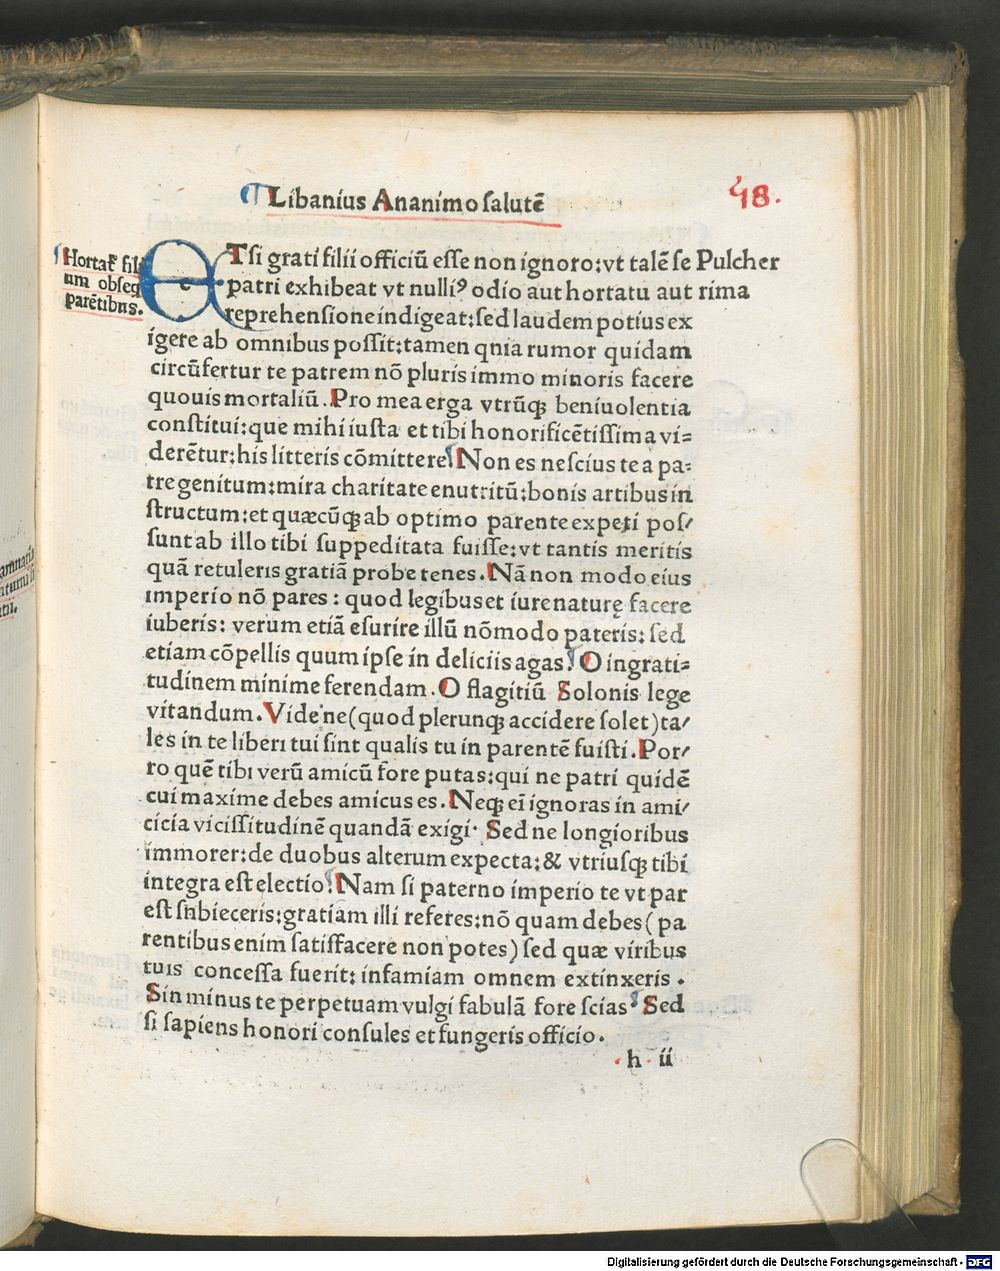 ¶ Libanius Ananimo salutē
48.
Hortat᷑ fili
um obseq
parētibus.
ETsi grati filii officiū esse non ignoro: vt talē se Pulcher
patri exhibeat vt nulliꝰ odio aut hortatu aut rima
reprehensione indigeat: sed laudem potius ex
igere ab omnibus possit: tamen qnia rumor quidam
circūfertur te patrem nō pluris immo minoris facere
quouis mortaliū. Pro mea erga vtrūqꝫ beniuolentia
constitui: que mihi iusta et tibi honorificētissima vi-
derētur: his litteris cōmittere. Non es nescius te a pa-
tre genitum: mira charitate enutritū: bonis artibus in
structum: et quæcūqꝫ ab optimo parente expeti pos/
sunt ab illo tibi suppeditata fuisse: vt tantis meritis
quā retuleris gratiā probe tenes. Nā non modo eius
imperio nō pares: quod legibus et iure naturę facere
iuberis: verum etiā esurire illū nō modo pateris: sed
etiam cōpellis quum ipse in deliciis agas. O ingrati-
tudinem minime ferendam. O flagitiū Solonis lege
vitandum. Vide ne (quod plerunqꝫ accidere solet) ta/
les in te liberi tui sint qualis tu in parentē fuisti. Por/
ro quē tibi verū amicū fore putas: qui ne patri quidē
cui maxime debes amicus es. Neqꝫ ei ignoras in ami/
cicia vicissitudinē quandā exigi. Sed ne longioribus
immorer: de duobus alterum expecta: & vtriusqꝫ tibi
integra est electio. Nam si paterno imperio te vt par
est snbieceris: gratiam illi referes: nō quam debes (pa
rentibus enim satisfacere non potes) sed quæ viribus
tuis concessa fuerit: infamiam omnem extinxeris.
Sin minus te perpetuam vulgi fabulā fore scias. Sed
si sapiens honori consules et fungeris officio.
h ii
Digitalisierung gefördert durch die Deutsche Forschungsgemeinschaft - DFG